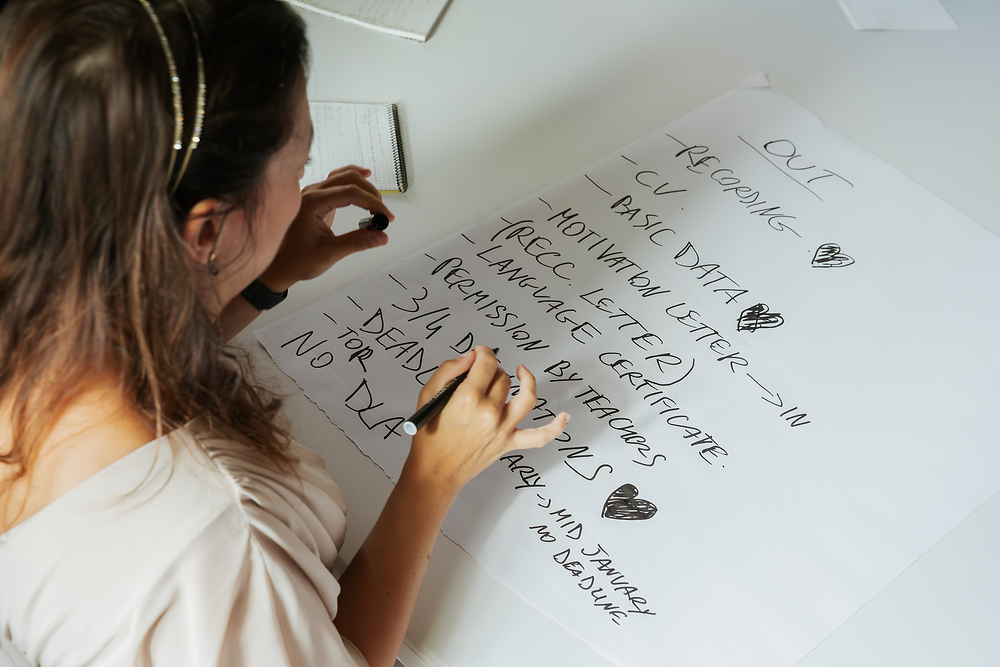 OUT
- RECORDING.
- CV.
- BASIC DATA
- MOTIVATION LETTER -> IN
- (RECC. LETTER)
- LANGUAGE CERTIFICATE.
- PERMISSION BY TEACHORS
- 3/4
- TOR
NO DLA
-> MID JANUARY
NO DEADLINE